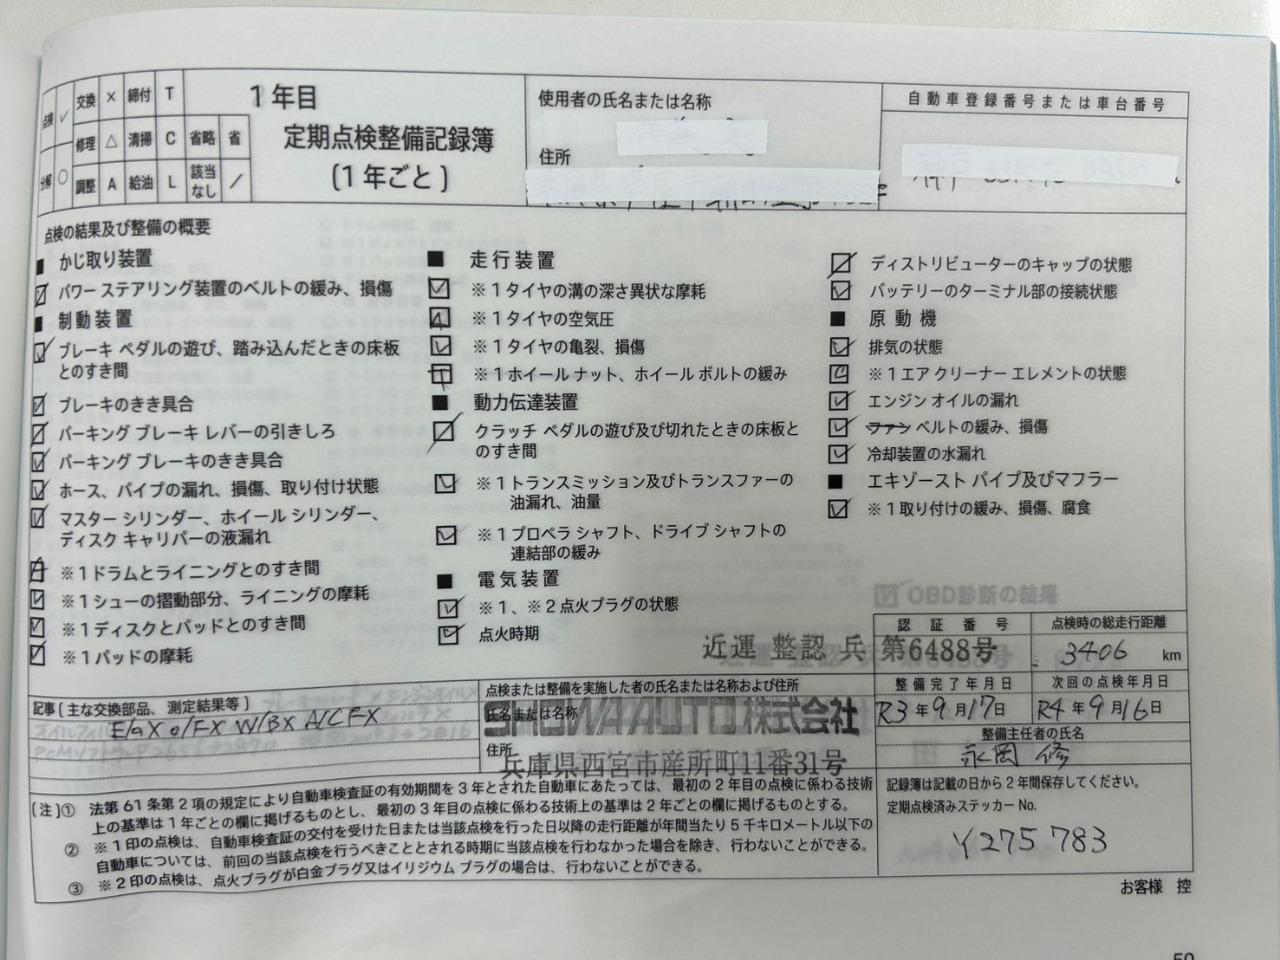 点検 ✓ 交換 × 締付 T
分解 ○ 修理 △ 清掃 C 省略 省
調整 A 給油 L 該当なし /
1年目
定期点検整備記録簿
(1年ごと)
使用者の氏名または名称
住所
自動車登録番号または車台番号
点検の結果及び整備の概要
■ かじ取り装置
パワー ステアリング装置のベルトの緩み、損傷
■ 制動装置
ブレーキ ペダルの遊び、踏み込んだときの床板
とのすき間
ブレーキのきき具合
パーキング ブレーキ レバーの引きしろ
パーキング ブレーキのきき具合
ホース、パイプの漏れ、損傷、取り付け状態
マスター シリンダー、ホイール シリンダー、
ディスク キャリパーの液漏れ
※1ドラムとライニングとのすき間
※1シューの摺動部分、ライニングの摩耗
※1ディスクとパッドとのすき間
※1パッドの摩耗
■ 走行装置
※1タイヤの溝の深さ異状な摩耗
※1タイヤの空気圧
※1タイヤの亀裂、損傷
※1ホイール ナット、ホイール ボルトの緩み
■ 動力伝達装置
クラッチ ペダルの遊び及び切れたときの床板と
のすき間
※1トランスミッション及びトランスファーの
油漏れ、油量
※1プロペラ シャフト、ドライブ シャフトの
連結部の緩み
■ 電気装置
※1、※2点火プラグの状態
点火時期
ディストリビューターのキャップの状態
バッテリーのターミナル部の接続状態
■ 原動機
排気の状態
※1エア クリーナー エレメントの状態
エンジン オイルの漏れ
ファン ベルトの緩み、損傷
冷却装置の水漏れ
■ エキゾースト パイプ及びマフラー
※1取り付けの緩み、損傷、腐食
OBD診断の結果
認証番号
近運 整認 兵 第6488号
点検時の総走行距離
3406 km
整備完了年月日
R3年9月17日
次回の点検年月日
R4年9月16日
整備主任者の氏名
永岡 修
記事〔主な交換部品、測定結果等〕
E/oX o/FX W/BX A/CFX
点検または整備を実施した者の氏名または名称および住所
氏名または名称
SHOWA AUTO株式会社
住所
兵庫県西宮市産所町11番31号
記録簿は記載の日から2年間保存してください。
定期点検済みステッカー No.
Y275783
〔注〕① 法第61条第2項の規定により自動車検査証の有効期間を3年とされた自動車にあたっては、最初の2年目の点検に係わる技術
上の基準は1年ごとの欄に掲げるものとし、最初の3年目の点検に係わる技術上の基準は2年ごとの欄に掲げるものとする。
② ※1印の点検は、自動車検査証の交付を受けた日または当該点検を行った日以降の走行距離が年間当たり5千キロメートル以下の
自動車については、前回の当該点検を行うべきこととされる時期に当該点検を行わなかった場合を除き、行わないことができる。
③ ※2印の点検は、点火プラグが白金プラグ又はイリジウム プラグの場合は、行わないことができる。
お客様 控
50